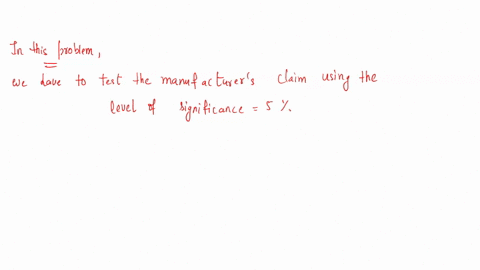 In this problem,
we have to test the manufacturer's claim using the
level of significance = 5 %.